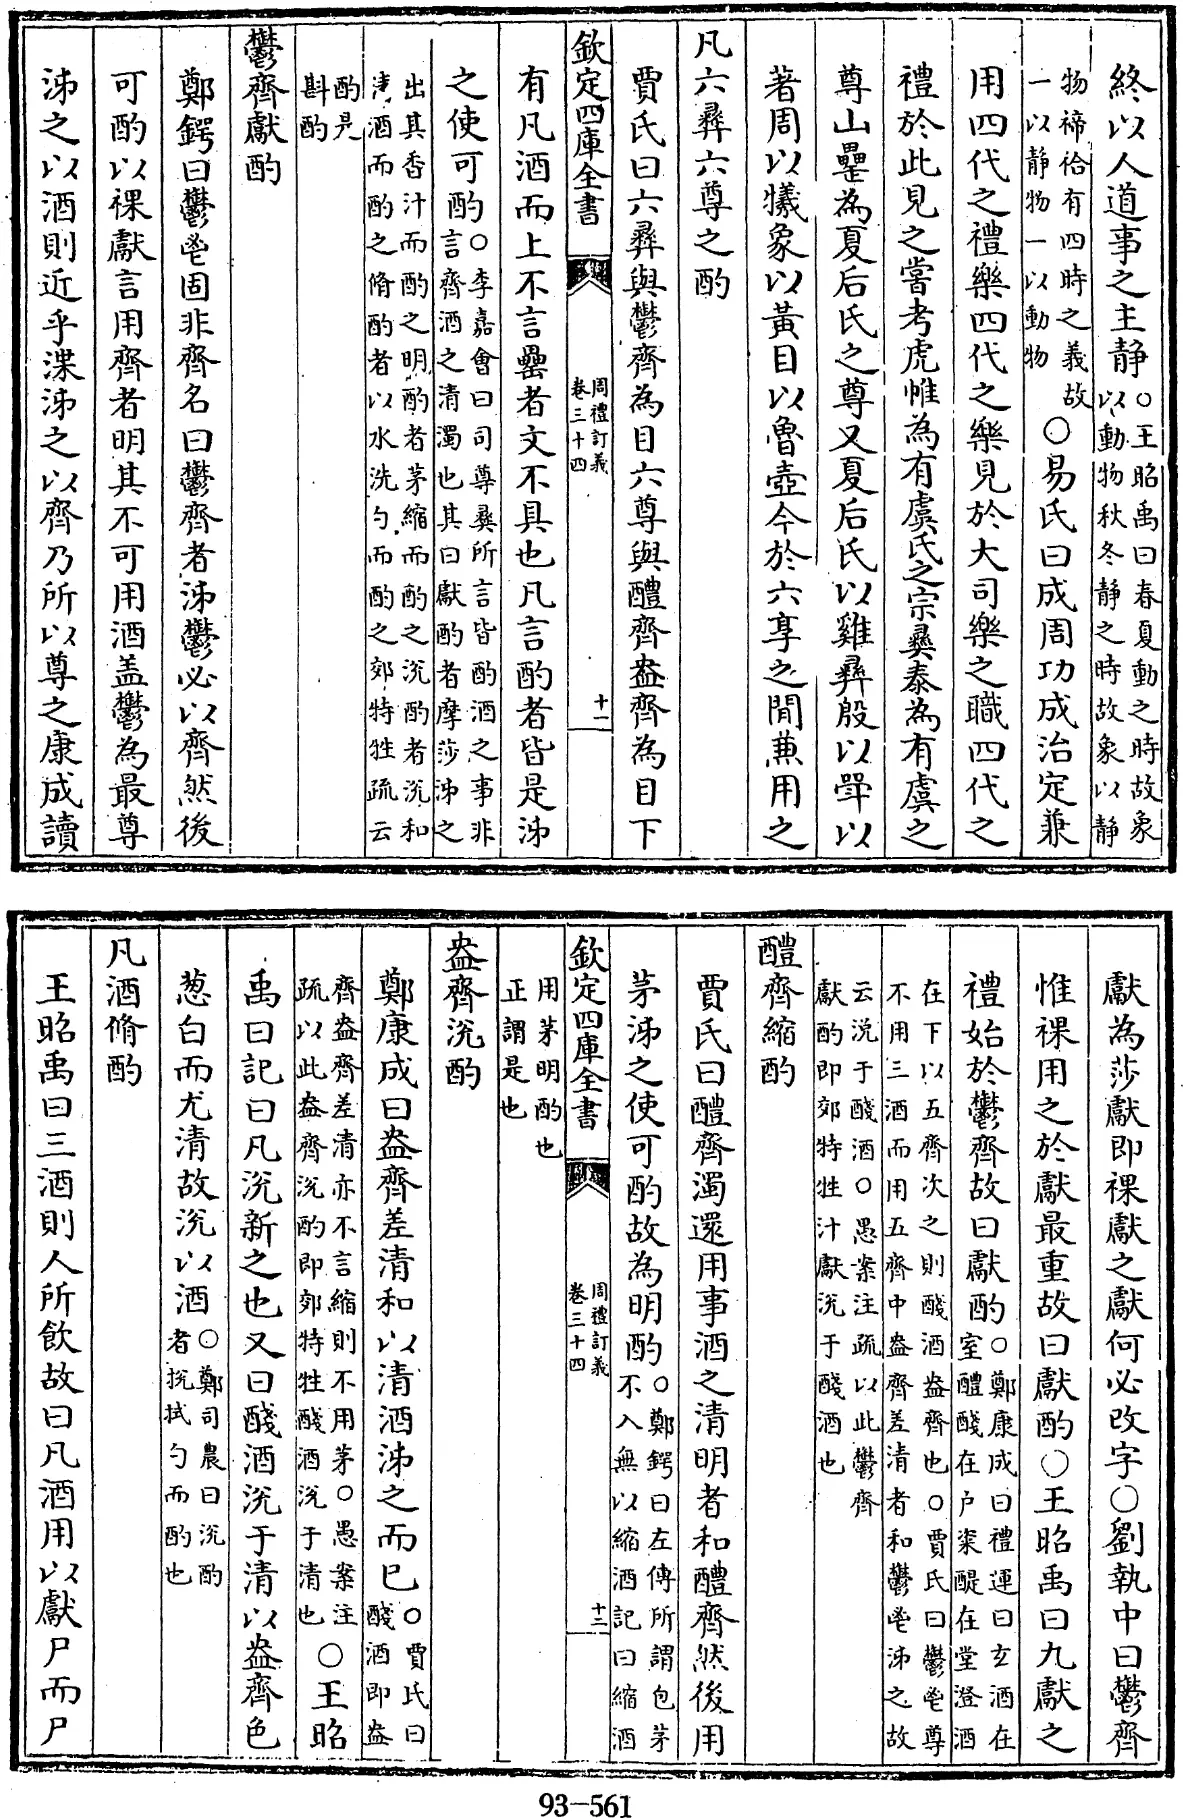 終以人道事之主静○王昭禹曰春夏動之時故象
以動物秋冬静之時故象以静
物禘祫有四時之義故
一以静物一以動物
○易氏曰成周功成治定兼
用四代之禮樂四代之樂見於大司樂之職四代之
禮於此見之嘗考虎帷為有虞氏之宗彝泰為有虞之
尊山罍為夏后氏之尊又夏后氏以雞彝殷以斝以
著周以犧象以黃目以魯壺今於六享之間兼用之
凡六彝六尊之酌
賈氏曰六彝與鬱齊為目六尊與醴齊盎齊為目下
欽定四庫全書
周禮訂義
卷三十四
十一
有凡酒而上不言罍者文不具也凡言酌者皆是泲
之使可酌○李嘉會曰司尊彝所言皆酌酒之事非
言齊酒之清濁也其曰獻酌者摩莎泲之
出其香汁而酌之明酌者茅縮而酌之涚酌者涚和
清酒而酌之脩酌者以水洗勺而酌之郊特牲疏云
酌是
斟酌
鬱齊獻酌
鄭鍔曰鬱鬯固非齊名曰鬱齊者泲鬱必以齊然後
可酌以祼獻言用齊者明其不可用酒盖鬱為最尊
泲之以酒則近乎渫泲之以齊乃所以尊之康成讀
獻為莎獻即祼獻之獻何必改字○劉執中曰鬱齊
惟祼用之於獻最重故曰獻酌○王昭禹曰九獻之
禮始於鬱齊故曰獻酌○鄭康成曰禮運曰玄酒在
室醴醆在户粢醍在堂澄酒
在下以五齊次之則醆酒盎齊也○賈氏曰鬱鬯尊
不用三酒而用五齊中盎齊差清者和鬱鬯泲之故
云涚于醆酒○愚案注疏以此鬱齊
獻酌即郊特牲汁獻涚于醆酒也
醴齊縮酌
賈氏曰醴齊濁還用事酒之清明者和醴齊然後用
茅泲之使可酌故為明酌○鄭鍔曰左傳所謂包茅
不入無以縮酒記曰縮酒
欽定四庫全書
周禮訂義
卷三十四
十二
用茅明酌也
正謂是也
盎齊涚酌
鄭康成曰盎齊差清和以清酒泲之而已○賈氏曰
醆酒即盎
齊盎齊差清亦不言縮則不用茅○愚案注
疏以此盎齊涚酌即郊特牲醆酒涚于清也
○王昭
禹曰記曰凡涚新之也又曰醆酒涚于清以盎齊色
葱白而尤清故涚以酒○鄭司農曰涚酌
者挩拭勺而酌也
凡酒脩酌
王昭禹曰三酒則人所飲故曰凡酒用以獻尸而尸
93-561